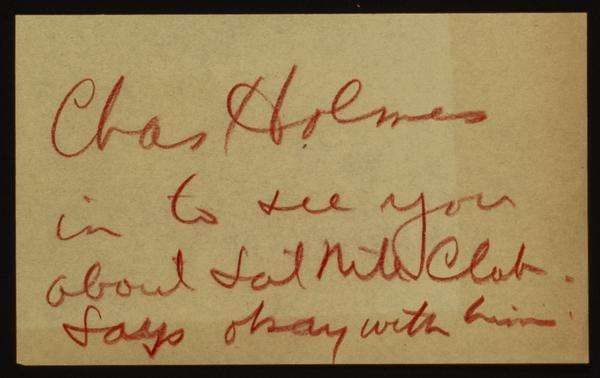 Chas Holmes
in to see you
about Sat Nite Club.
Says okay with him.